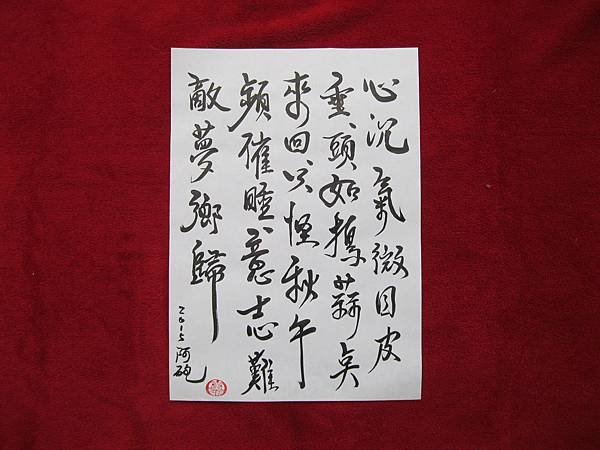 心沉氣微目皮
垂頭如搗蒜点
來回只怪秋午
頻催睡意志難
敵夢鄉歸
2015阿砲